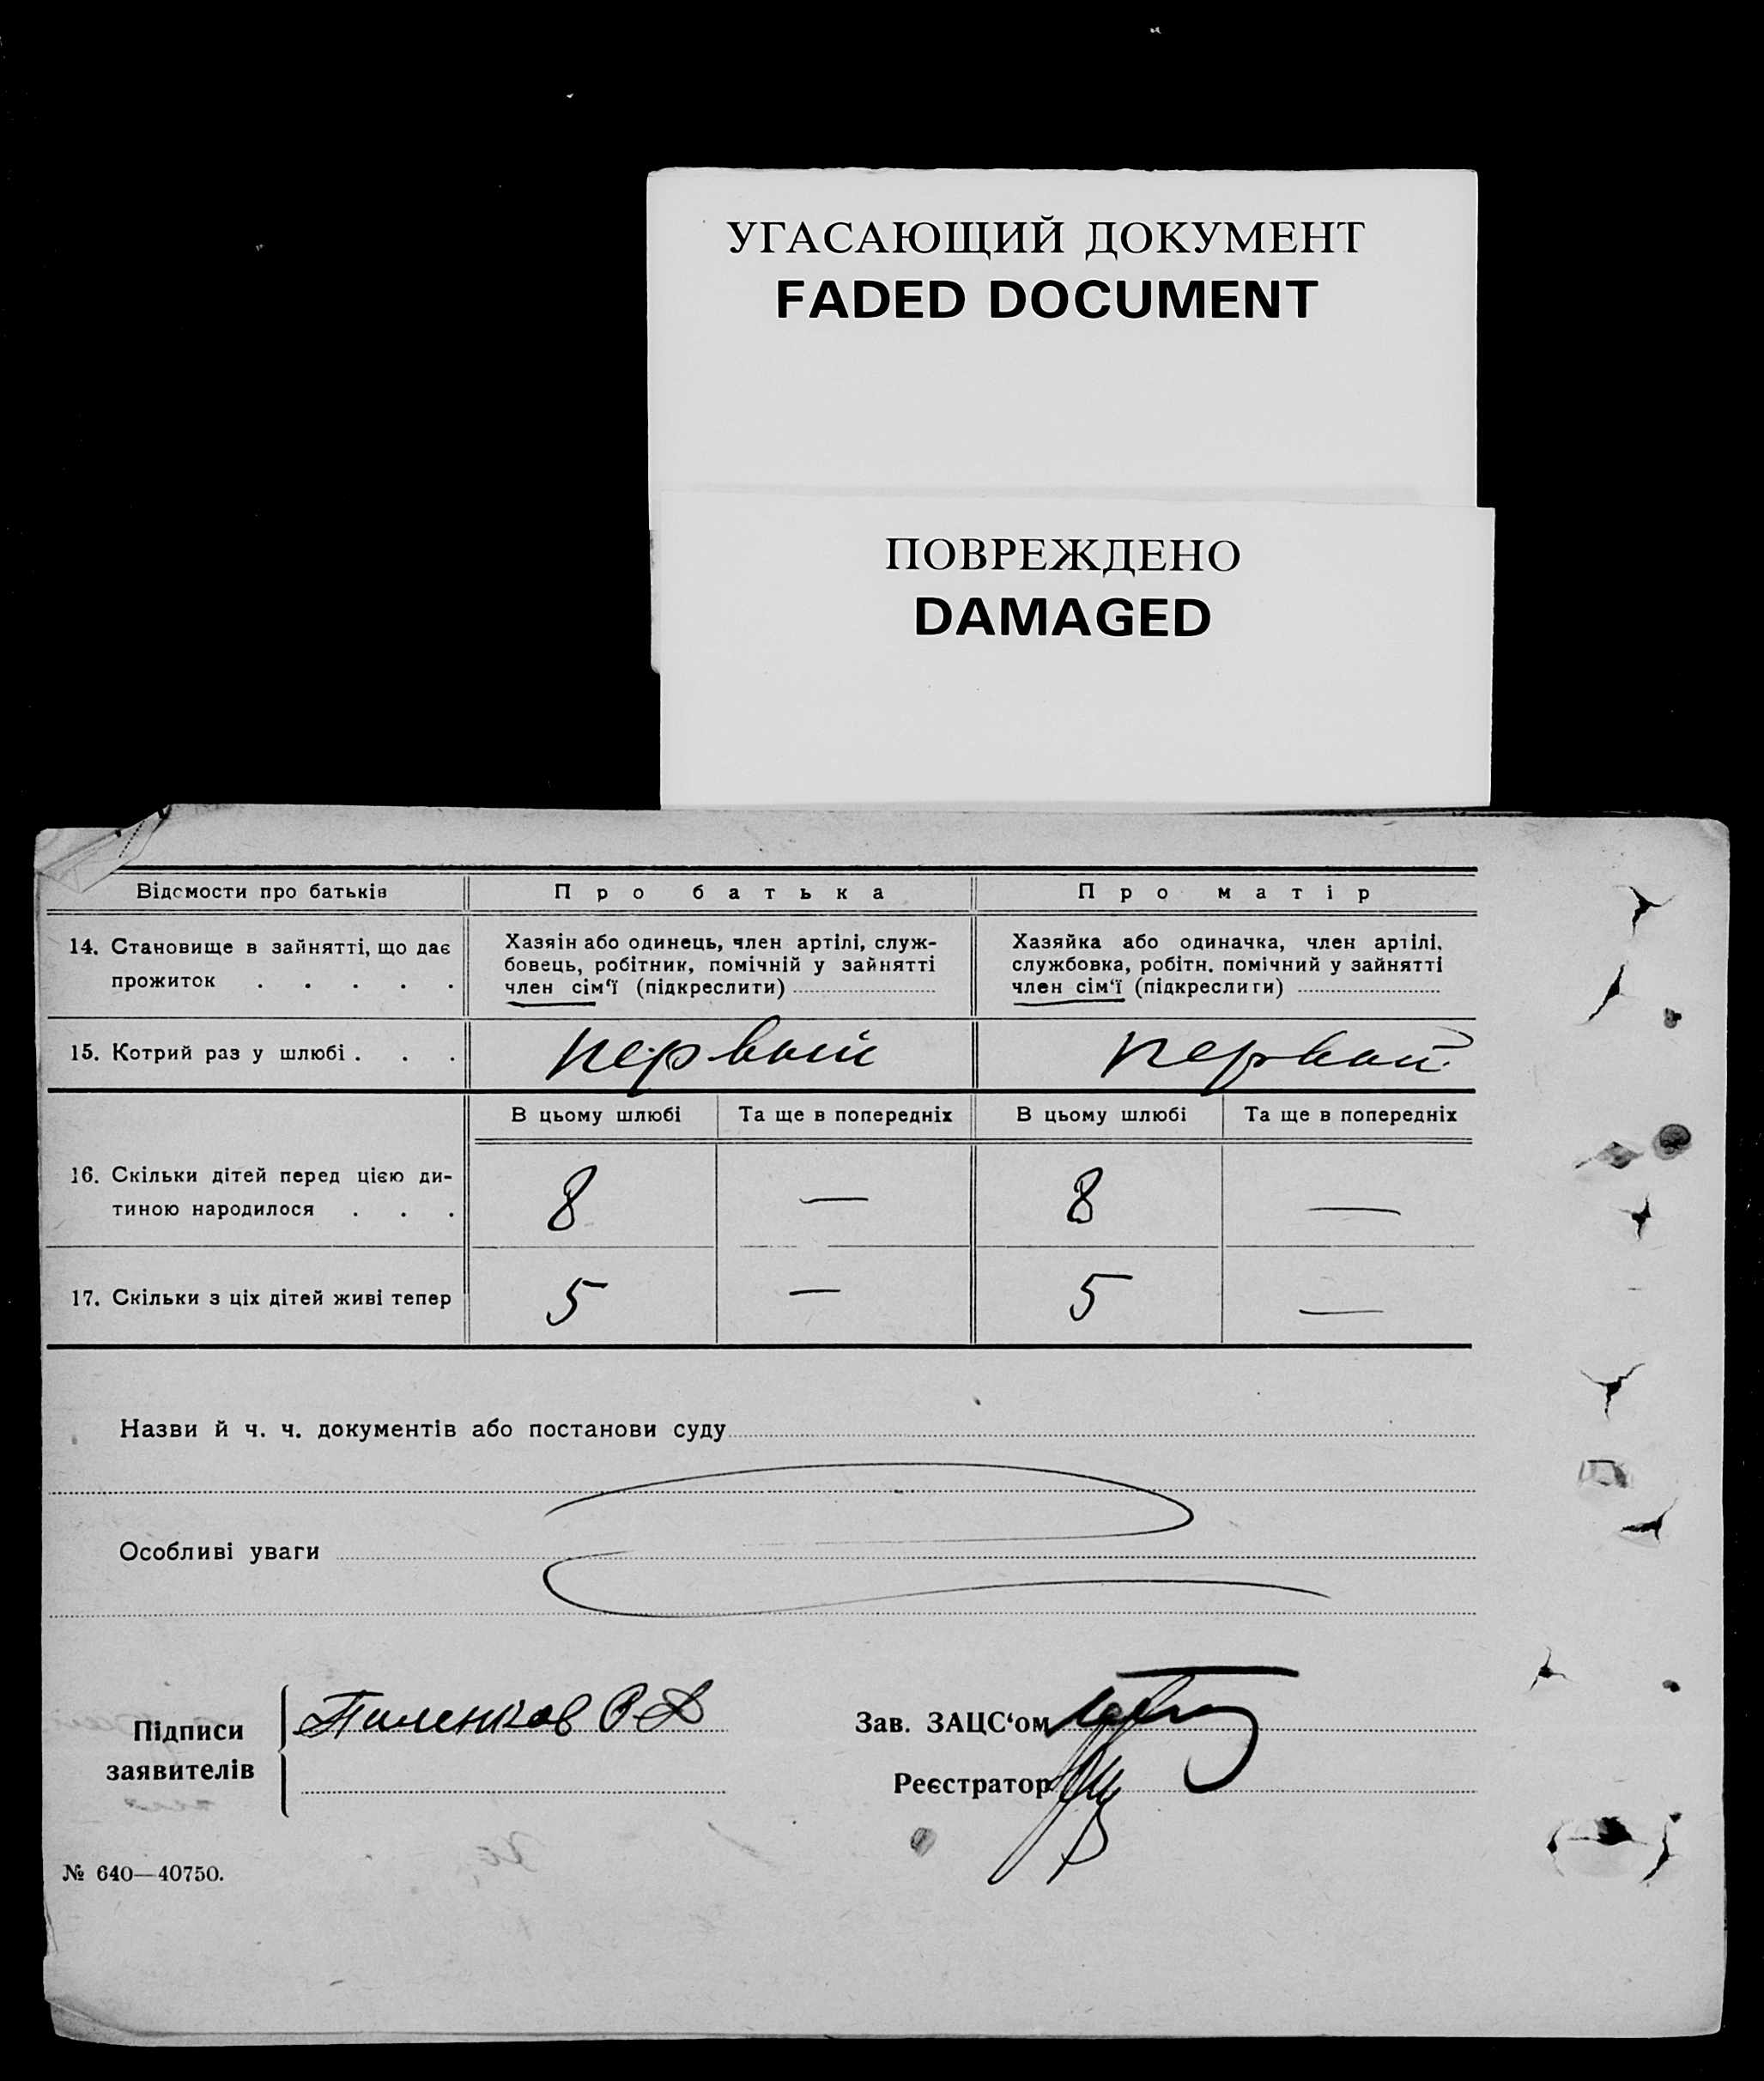 УГАСАЮЩИЙ ДОКУМЕНТ
FADED DOCUMENT
ПОВРЕЖДЕНО
DAMAGED
Відомости про батьків
Про батька
Про матір
14. Становище в зайнятті, що дає
прожиток . . . . .
Хазяін або одинець, член артілі, служ-
бовець, робітник, помічній у зайнятті
член сім‘ї (підкреслити)
Хазяйка або одиначка, член артілі,
службовка, робітн. помічний у зайнятті
член сім‘ї (підкреслити)
15. Котрий раз у шлюбі . . .
первый
первый
В цьому шлюбі
Та ще в попередніх
В цьому шлюбі
Та ще в попередніх
16. Скільки дітей перед цією ди-
тиною народилося . . .
8 — 8 —
17. Скільки з ціх дітей живі тепер
5 — 5 —
Назви й ч. ч. документів або постанови суду
Особливі уваги
Підписи
заявителів
Зав. ЗАЦС‘ом
Реєстратор
№ 640—40750.